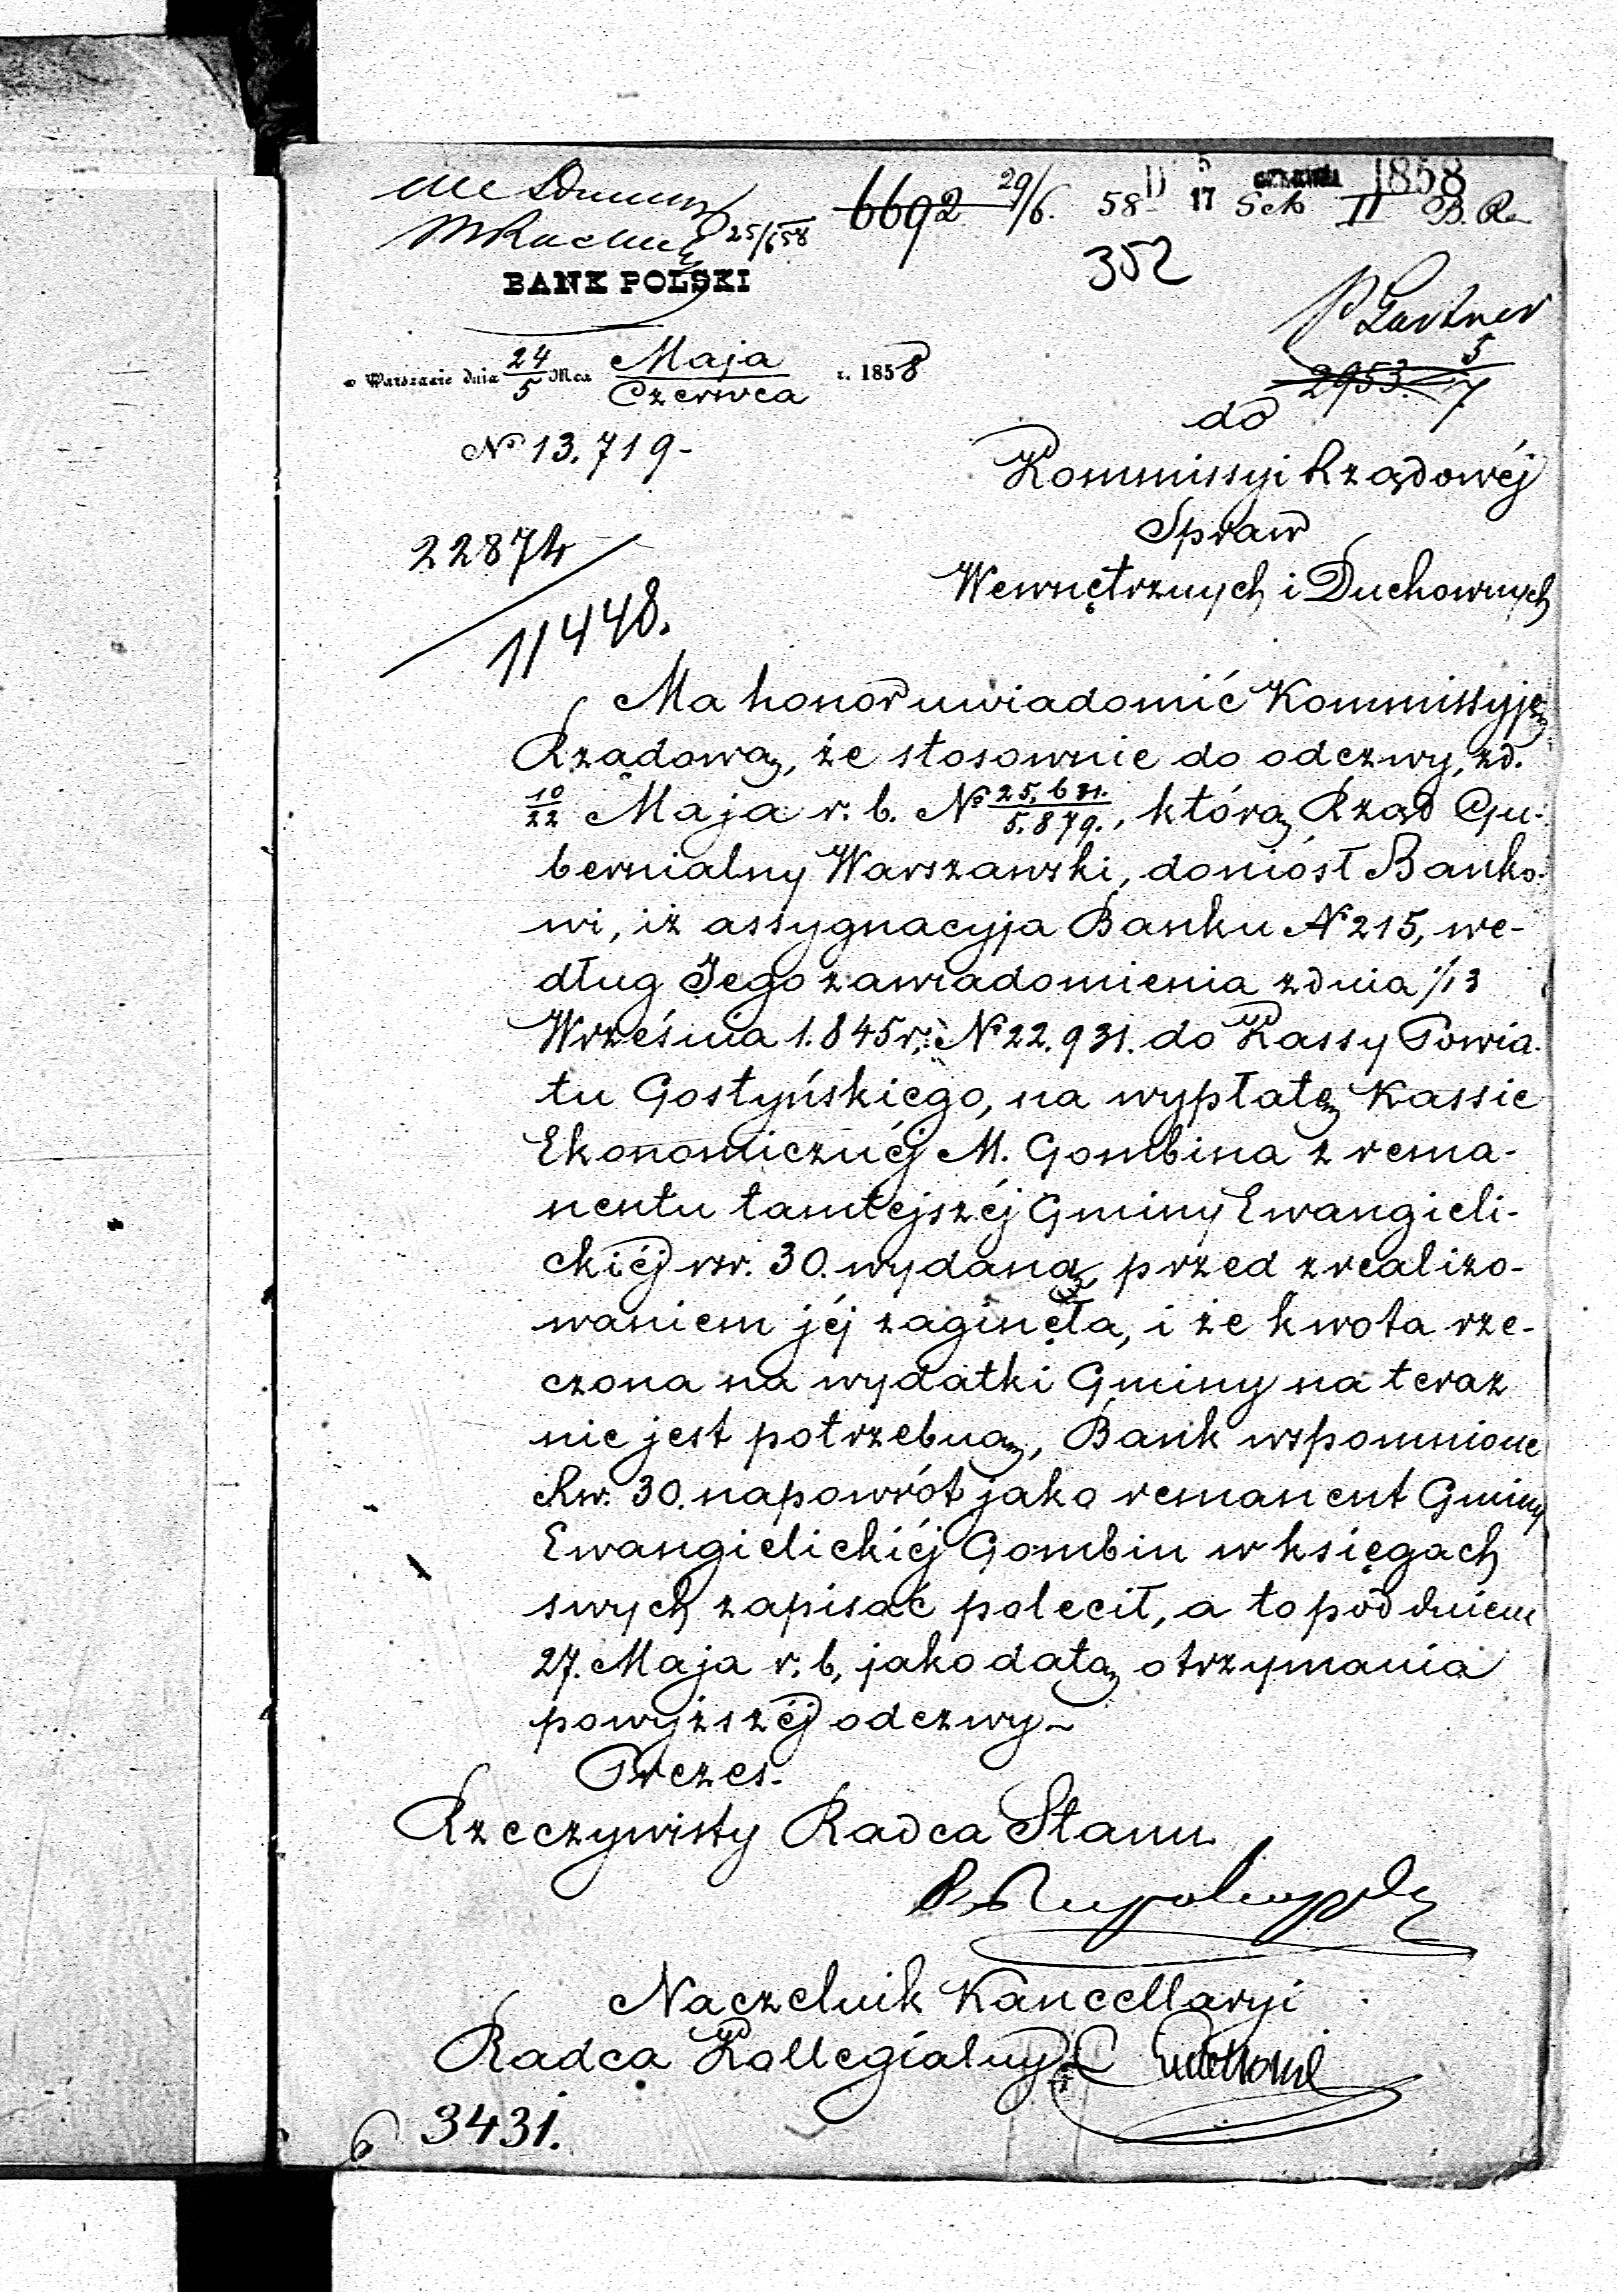 6692 29/6. 58 D 5/17 CZERWCA 1858
Sek II
25/6 58
352
BANK POLSKI
P Gartner
w Warszawie dnia 24/5 Mca Maja/Czerwca r. 1858
2953. 5/7
do
№ 13.719-
Kommissyi Rządowéj
Spraw
22874
Wewnętrznych i Duchownych
11448.
Ma honor uwiadomić Kommissyję
Rządową, że stosownie do odezwy, z d.
10/22 Maja r. b. № 25.631./5.879., którą Rząd Gu-
bernialny Warszawski, doniósł Banko-
wi, iż assygnacyja Banku № 215, we-
dług Jego zawiadomienia z dnia 1/13
Września 1.845 r. № 22.931. do Kassy Powia-
tu Gostyńskiego, na wypłatę Kassie
Ekonomicznéj M. Gombina z rema-
nentu tamtejszéj Gminy Ewangieli-
ckiéj rsr. 30. wydaną, przed zrealizo-
waniem jéj zaginęła, i że kwota rze-
czona na wydatki Gminy na teraz
nie jest potrzebną, Bank wspomnione
Rsr. 30. napowrót jako remanent Gminy
Ewangielickiéj Gombin w księgach
swych zapisać polecił, a to pod dniem
27. Maja r. b, jako datą otrzymania
powyższéj odezwy-
Prezes.
Rzeczywisty Radca Stanu
Naczelnik Kancellaryi
Radca Kollegialny
3431.